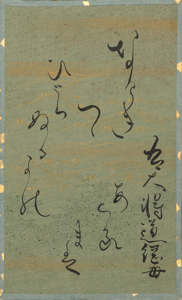 右大将道綱母
なけき
つゝ
ひとり
ぬるよの
あくる
まは